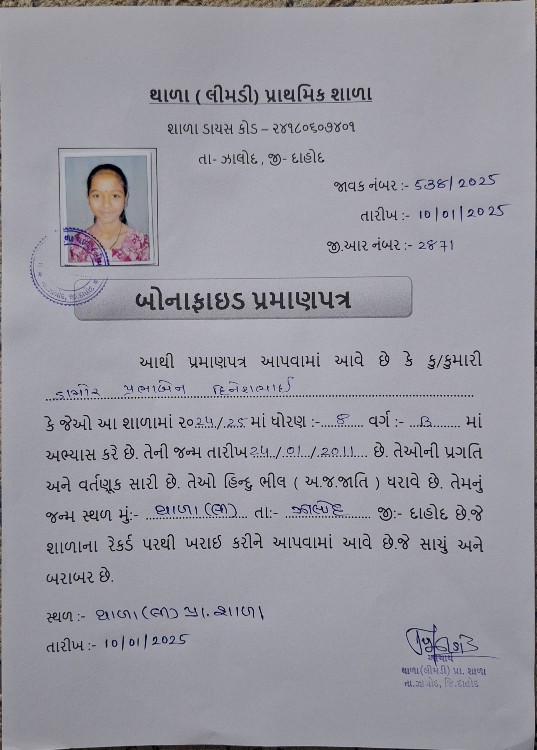 થાળા ( લીમડી) પ્રાથમિક શાળા
શાળા ડાયસ કોડ – ૨૪૧૮૦૬૦૭૪૦૧
તા- ઝાલોદ , જી- દાહોદ
જાવક નંબર :- 538/2025
તારીખ :- 10/01/2025
જી.આર નંબર :- 2871
બોનાફાઇડ પ્રમાણપત્ર
આથી પ્રમાણપત્ર આપવામાં આવે છે કે કુ/કુમારી
ડામોર પ્રભાબેન દિનેશભાઈ
કે જેઓ આ શાળામાં ૨૦૨૫/૨૬ માં ધોરણ :- 8 વર્ગ :- B માં
અભ્યાસ કરે છે. તેની જન્મ તારીખ /01/2011 છે. તેઓની પ્રગતિ
અને વર્તણૂક સારી છે. તેઓ હિન્દુ ભીલ ( અ.જ.જાતિ ) ધરાવે છે. તેમનું
જન્મ સ્થળ મું:- થાળા (લી) તા:- ઝાલોદ જી:- દાહોદ છે.જે
શાળાના રેકર્ડ પરથી ખરાઈ કરીને આપવામાં આવે છે.જે સાચું અને
બરાબર છે.
સ્થળ :- થાળા (લી) પ્રા. શાળા
તારીખ :- 10/01/2025
આચાર્ય
થાળા(લીમડી) પ્રા. શાળા
તા.ઝાલોદ, જિ.દાહોદ